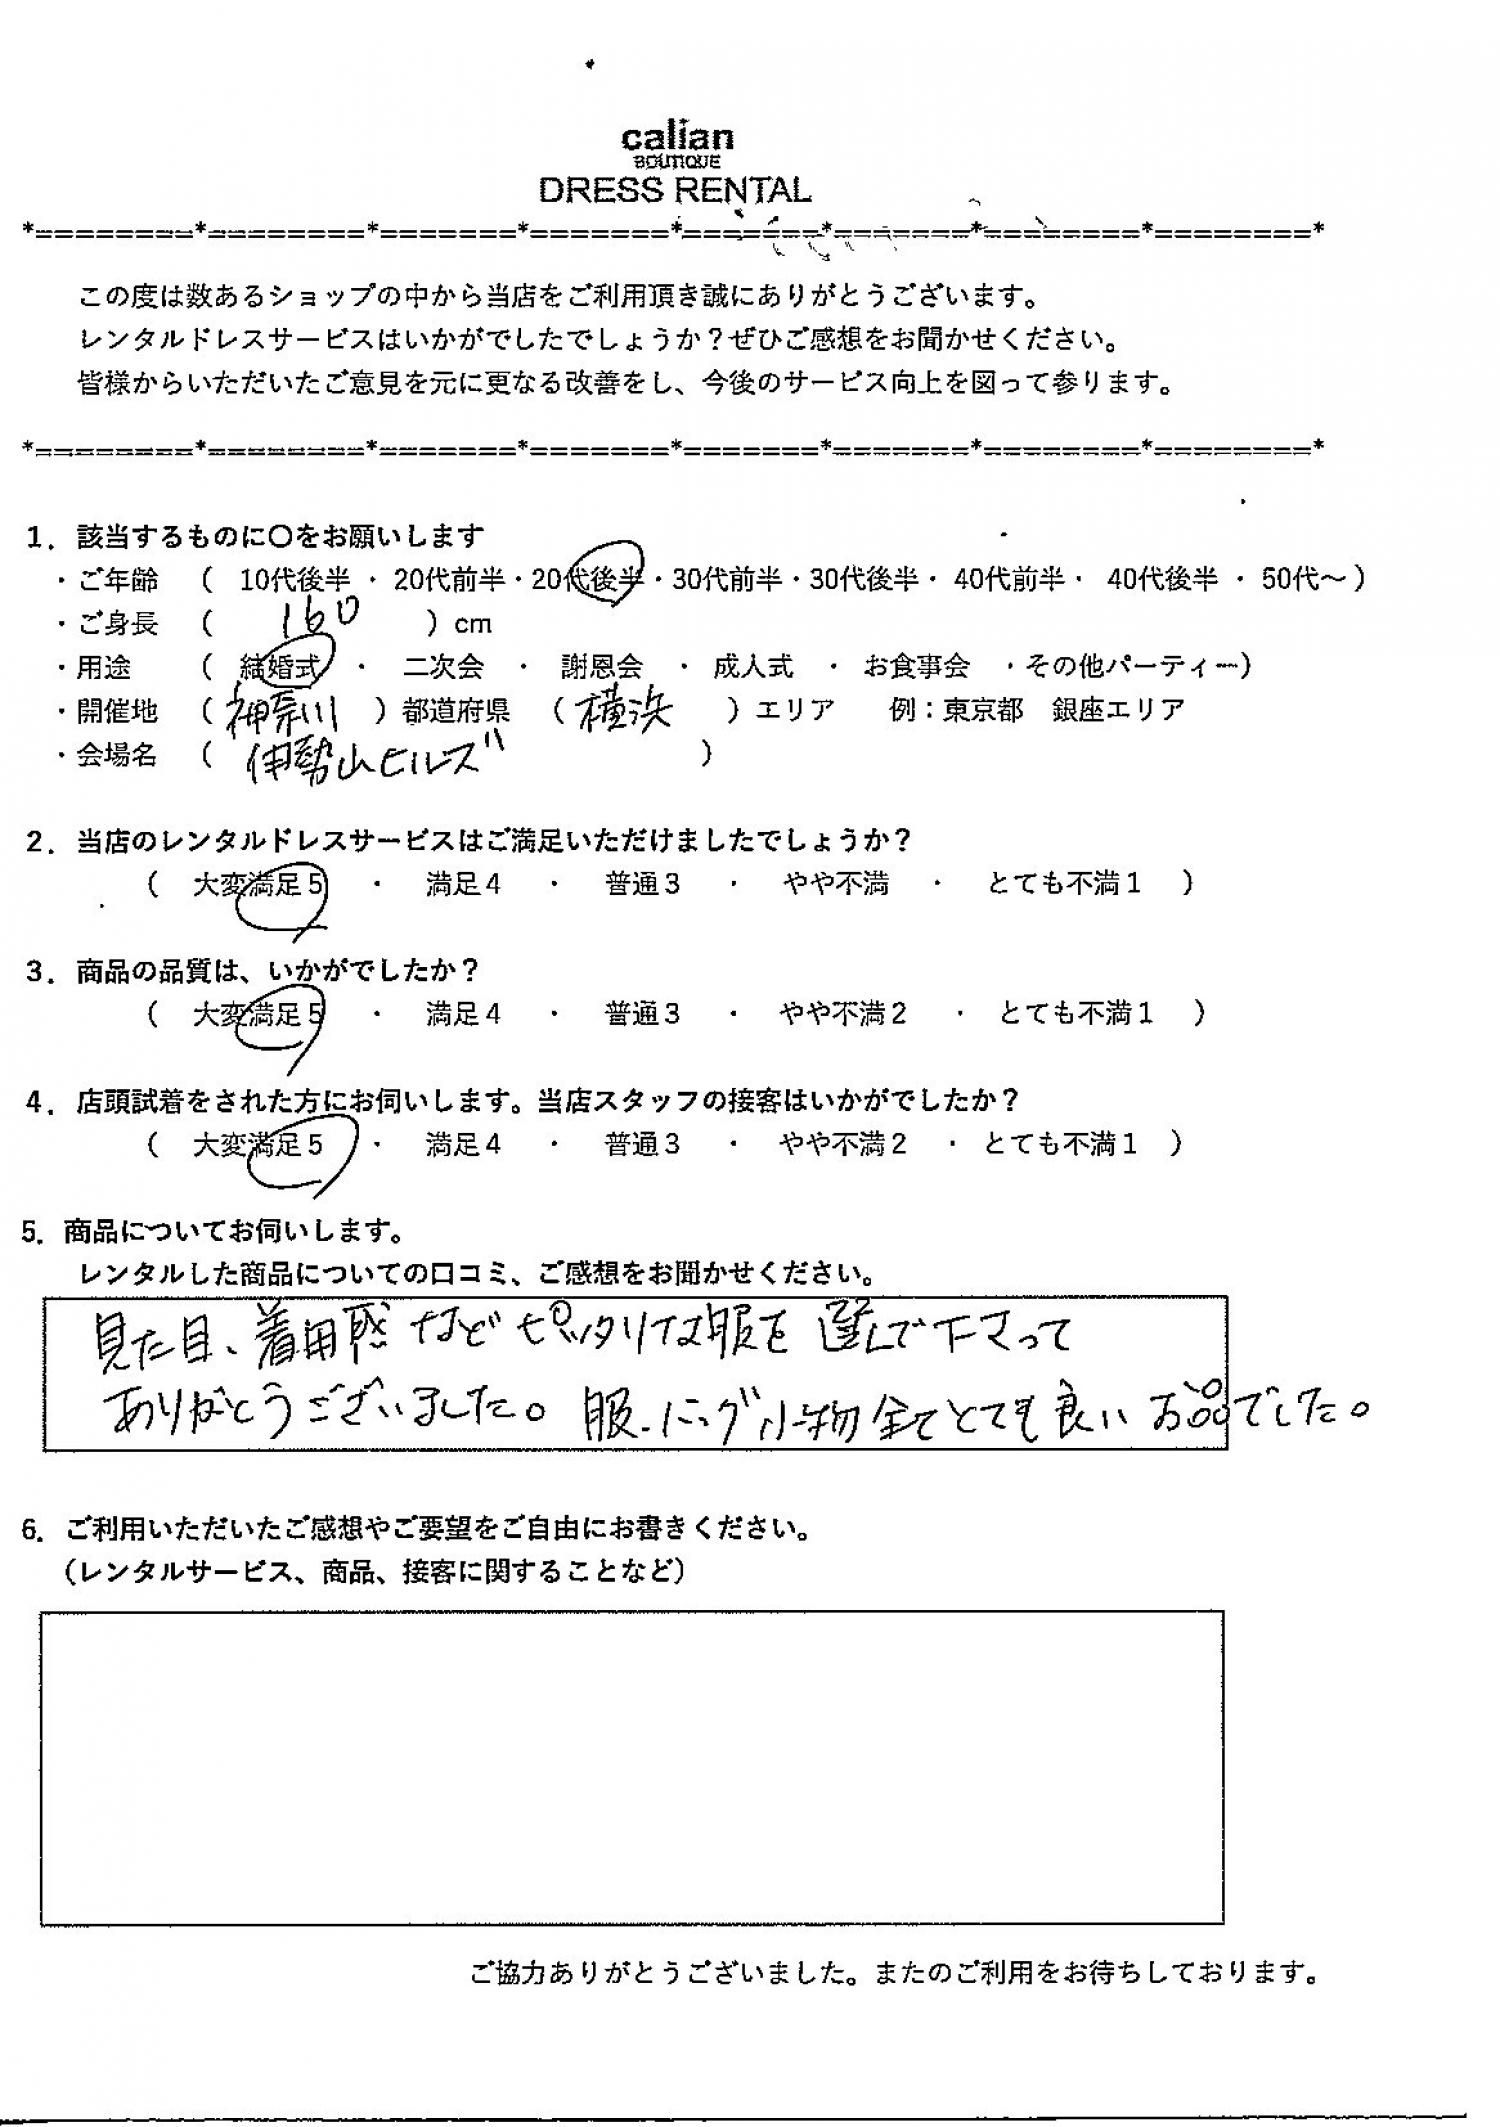 calian
BOUTIQUE
DRESS RENTAL
*========*========*=======*=======*=======*=======*========*========*
この度は数あるショップの中から当店をご利用頂き誠にありがとうございます。
レンタルドレスサービスはいかがでしたでしょうか？ぜひご感想をお聞かせください。
皆様からいただいたご意見を元に更なる改善をし、今後のサービス向上を図って参ります。
*========*========*=======*=======*=======*=======*========*========*
1．該当するものに〇をお願いします
・ご年齢 （ 10代後半 ・ 20代前半・20代後半・30代前半・30代後半・ 40代前半・ 40代後半 ・ 50代～）
・ご身長 （ 160 ）cm
・用途 （ 結婚式 ・ 二次会 ・ 謝恩会 ・ 成人式 ・ お食事会 ・その他パーティー）
・開催地 （ 神奈川 ）都道府県 （ 横浜 ）エリア 例：東京都 銀座エリア
・会場名 （ 伊勢山ヒルズ ）
2．当店のレンタルドレスサービスはご満足いただけましたでしょうか？
（ 大変満足５ ・ 満足４ ・ 普通３ ・ やや不満 ・ とても不満１ ）
3．商品の品質は、いかがでしたか？
（ 大変満足５ ・ 満足４ ・ 普通３ ・ やや不満２ ・ とても不満１ ）
4．店頭試着をされた方にお伺いします。当店スタッフの接客はいかがでしたか？
（ 大変満足５ ・ 満足４ ・ 普通３ ・ やや不満２ ・ とても不満１ ）
5．商品についてお伺いします。
レンタルした商品についての口コミ、ご感想をお聞かせください。
見た目、着用感などピッタリな服を選んで下さって
ありがとうございました。服、バッグ小物全てとても良いお品でした。
6．ご利用いただいたご感想やご要望をご自由にお書きください。
（レンタルサービス、商品、接客に関することなど）
ご協力ありがとうございました。またのご利用をお待ちしております。